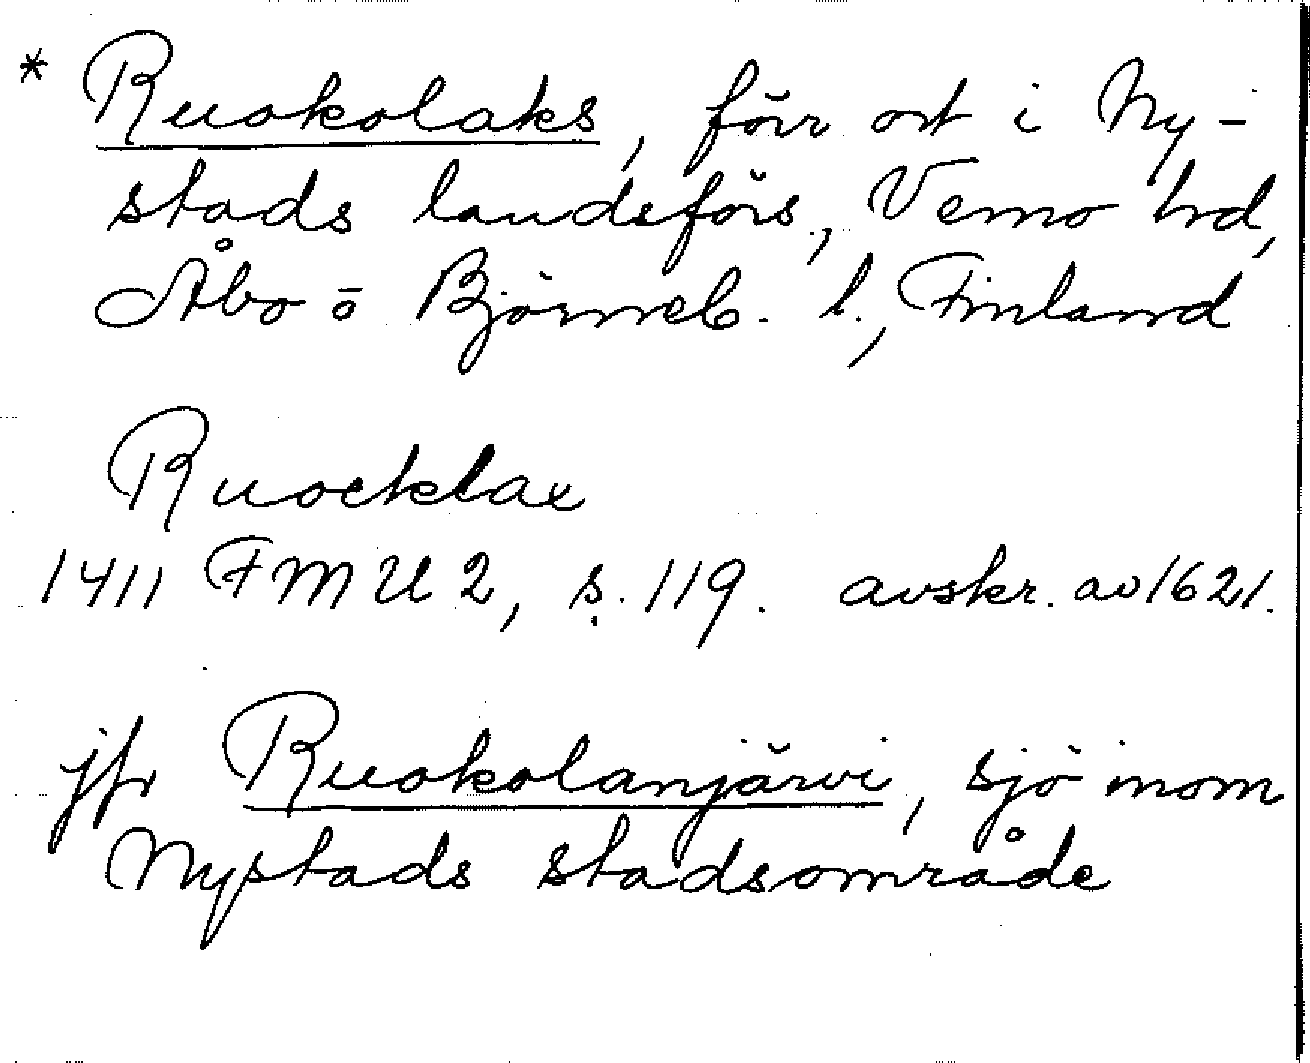 * Ruokolaks, förr ort i Ny-
stads landsförs, Vemo hrd,
Åbo o Björneb. l., Finland
Ruocklax
1411 FMU 2, s. 119. avskr. av 1621.
jfr Ruokolanjärvi, sjö inom
Nystads stadsområde